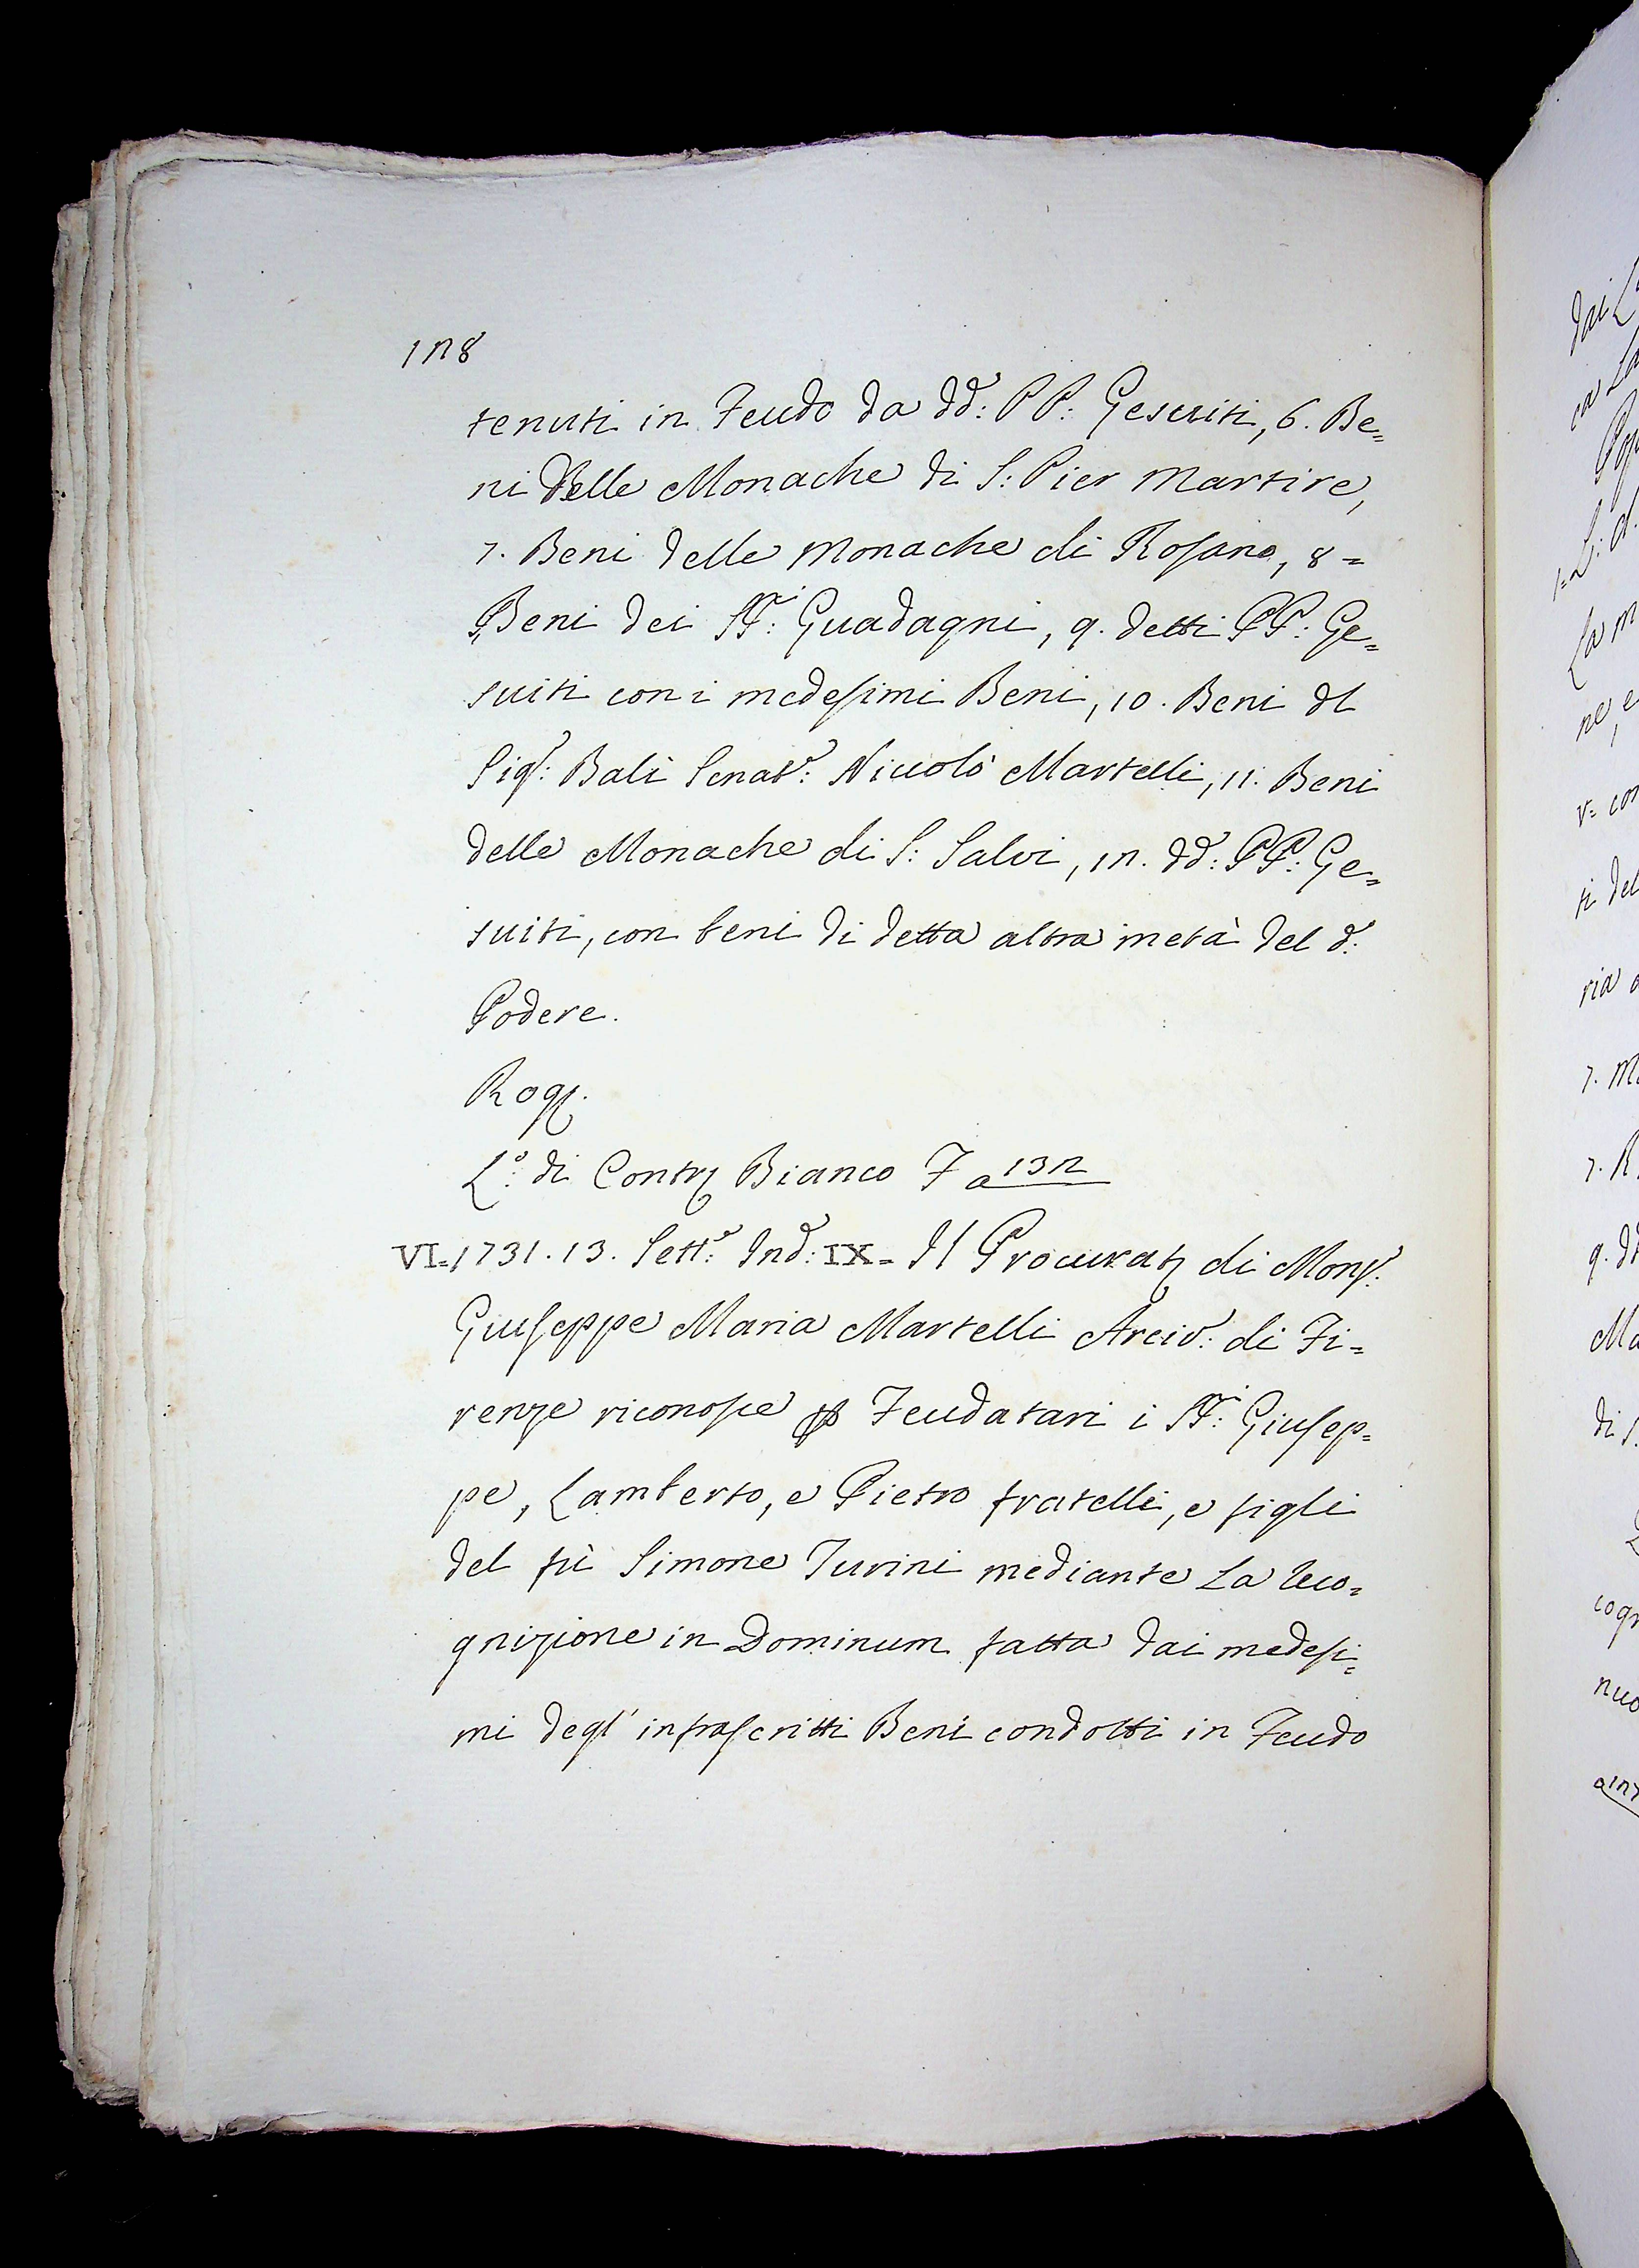 128
tenuti in Feudo da dd: PP: Gesuiti, 6. Be=
ni delle Monache di S: Pier Martire,
7. Beni delle Monache di Rosano, 8=
Beni dei SS.ri: Guadagni, 9. detti PP: Ge=
suiti con i medesimi Beni, 10. Beni dl
Sig.r: Balì Senat.e: Niccolò Martelli, 11. Beni
delle Monache di S: Salvi, 12. dd: PP: Ge=
suiti, con beni di detta altra metà del d:
Podere.
Rog.
L.o: di Contr Bianco F a 132
VI=1731. 13. Sett.e: Ind: IX= Il Procurat di Mons.r:
Giuseppe Maria Martelli Arciv: di Fi=
renze riconosce p Feudatari i SS.ri: Giusep=
pe, Lamberto, e Pietro fratelli, e figli
del fù Simone Turini mediante La Reco=
gnizione in Dominum fatta dai medesi=
mi degl' infrascritti Beni condotti in Feudo